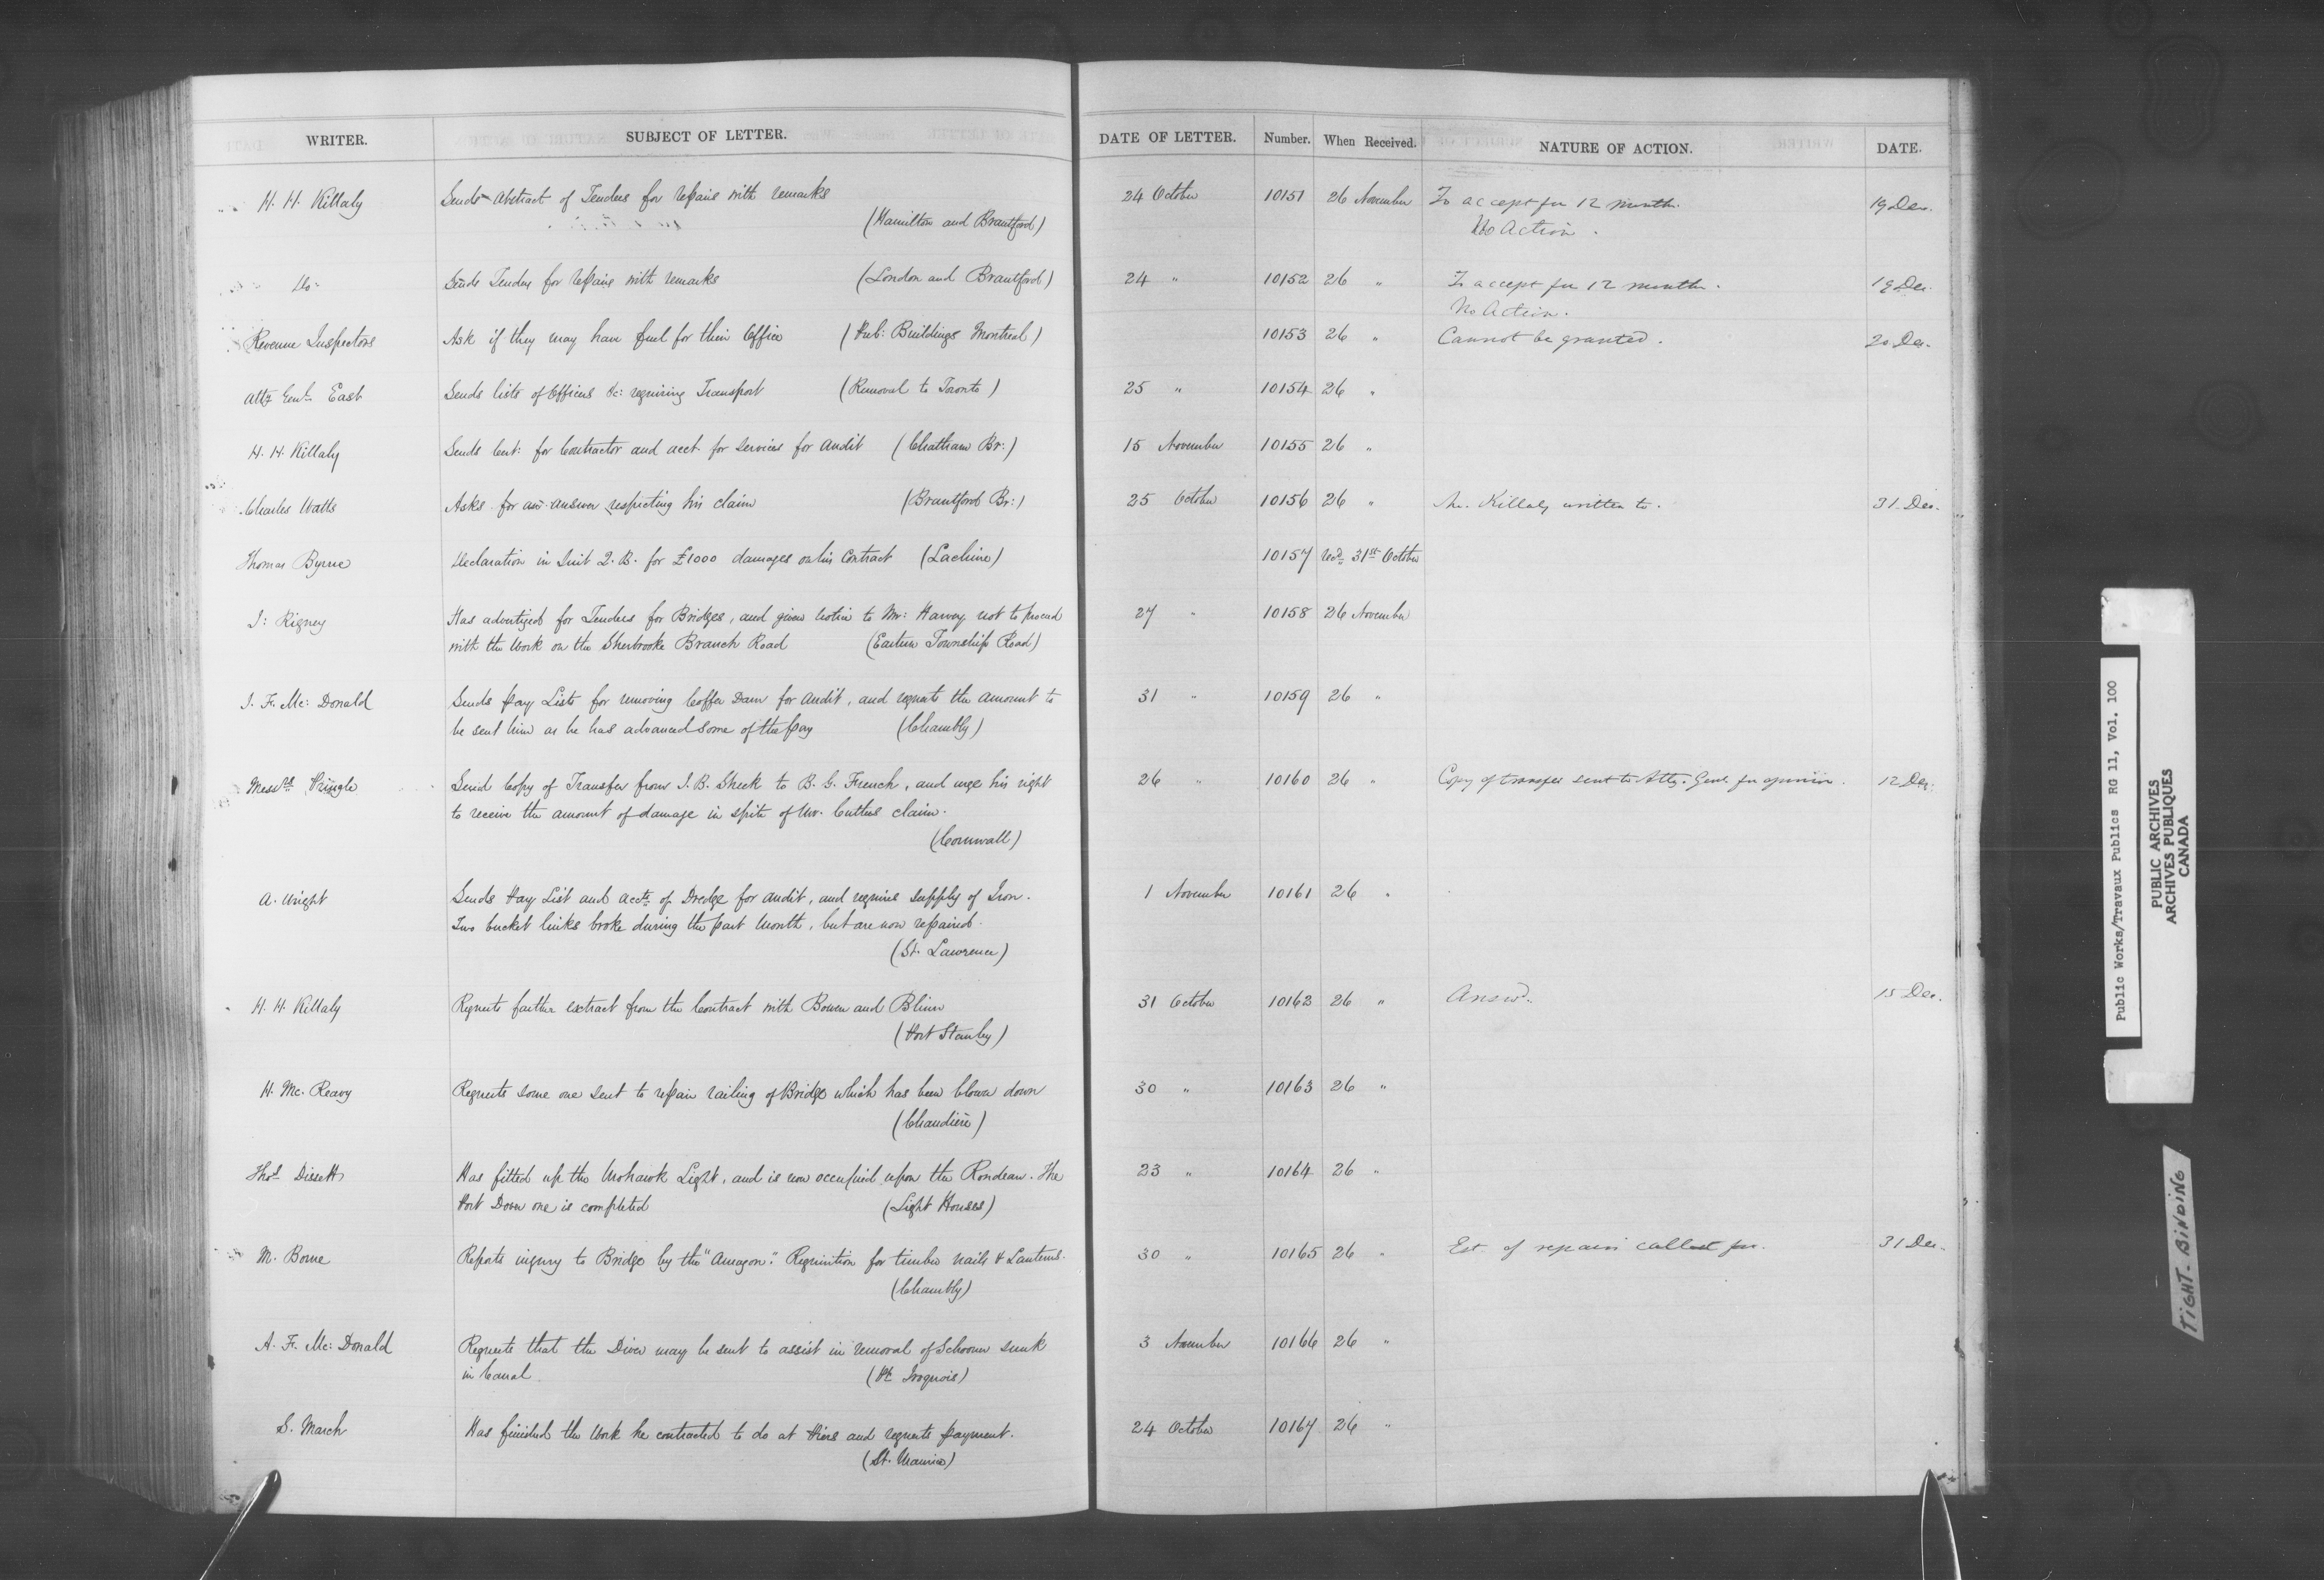 WRITER. SUBJECT OF LETTER. DATE OF LETTER. Number. When Received. NATURE OF ACTION. DATE.
H. H. Killaly Sends Abstract of Tenders for repairs with remarks 24 October 10151 26 November To accept for 12 months. 19 Dec.
(Hamilton and Brantford) No Action.
Do Sends Tenders for repairs with remarks (London and Brantford) 24 " 10152 26 " To accept for 12 months. 19 Dec.
No Action.
Revenue Inspectors Ask if they may have fuel for their Office (Pub: Buildings Montreal) 10153 26 " Cannot be granted. 20 Dec.
Atty Genl. East Sends lists of Officers &c: requiring Transport (Removal to Toronto) 25 " 10154 26 "
H. H. Killaly Sends Cert: for Contractor and acct. for services for audit (Chatham Br:) 15 November 10155 26 "
Charles Watts Asks for an answer respecting his claim (Brantford Br:) 25 October 10156 26 " Mr. Killaly written to. 31. Dec.
Thomas Byrne Declaration in Suit Q. B. for £1000 damages on his Contract (Lachine) 10157 Recd. 31st October
J: Rigney Has advertized for Tenders for Bridges, and given notice to Mr: Harvey not to proceed 27 " 10158 26 November
with the work on the Sherbrooke Branch Road (Eastern Township Road)
J. F. Mc: Donald Sends Pay Lists for removing Coffer Dam for audit, and requests the amount to 31 " 10159 26 "
be sent him as he has advanced some of the pay (Chambly)
Messrs Pringle Send Copy of Transfer from J. B. Sheek to B. G. French, and urge his right 26 " 10160 26 " Copy of transfer sent to Atty. Genl. for opinion. 12 Dec.
to receive the amount of damage in spite of Mr. Cutlers claim.
(Cornwall)
A. Wright Sends Pay List and accts. of Dredge for audit, and requires supply of Iron. 1 November 10161 26 "
Two bucket links broke during the past month, but are now repaired.
(St. Lawrence)
H. H. Killaly Requests farther extract from the Contract with Bowen and Blinn 31 October 10162 26 " Answd. 15 Dec.
(Port Stanley)
H. Mc. Reavy Requests some one sent to repair railing of Bridge which has been blown down 30 " 10163 26 "
(Chaudiere)
Thos. Dissett Has fitted up the Mohawk Light, and is now occupied upon the Rondeau. The 23 " 10164 26 "
Port Dover one is completed (Light Houses)
M. Borne Reports injury to Bridge by the "Amazon". Requisition for timber nails & Lanterns. 30 " 10165 26 " Est. of repairs called for. 31 Dec.
(Chambly)
A. F. Mc: Donald Requests that the Diver may be sent to assist in removal of Schooner sunk 3 November 10166 26 "
in Canal. (Pt. Iroquois)
S. March Has finished the work he contracted to do at Piers and requests payment. 24 October 10167 26 "
(St. Maurice)
Public Works/Travaux Publics RG 11, Vol. 100
PUBLIC ARCHIVES
ARCHIVES PUBLIQUES
CANADA
TIGHT BINDING